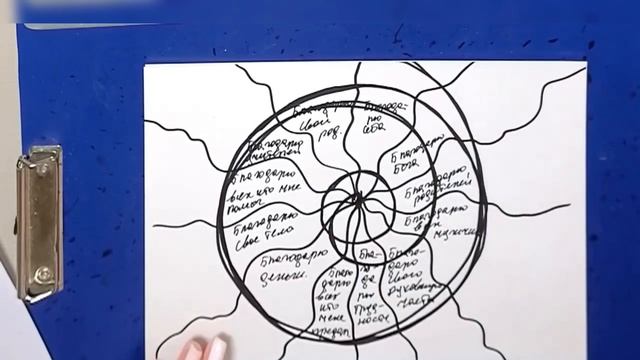 Благодарю
свой
род.
Благода-
рю
себя
Благодарю
Бога
Благодарю
родителей
Благодарю
всех
мужчин
Благо-
дарю
своего
духовного
Бла-
го
да
рю
Благо
дарю
всех
кто
меня
предал
Благодарю
деньги.
Благодарю
свое тело
Благодарю
всех кто мне
помог
Благодарю